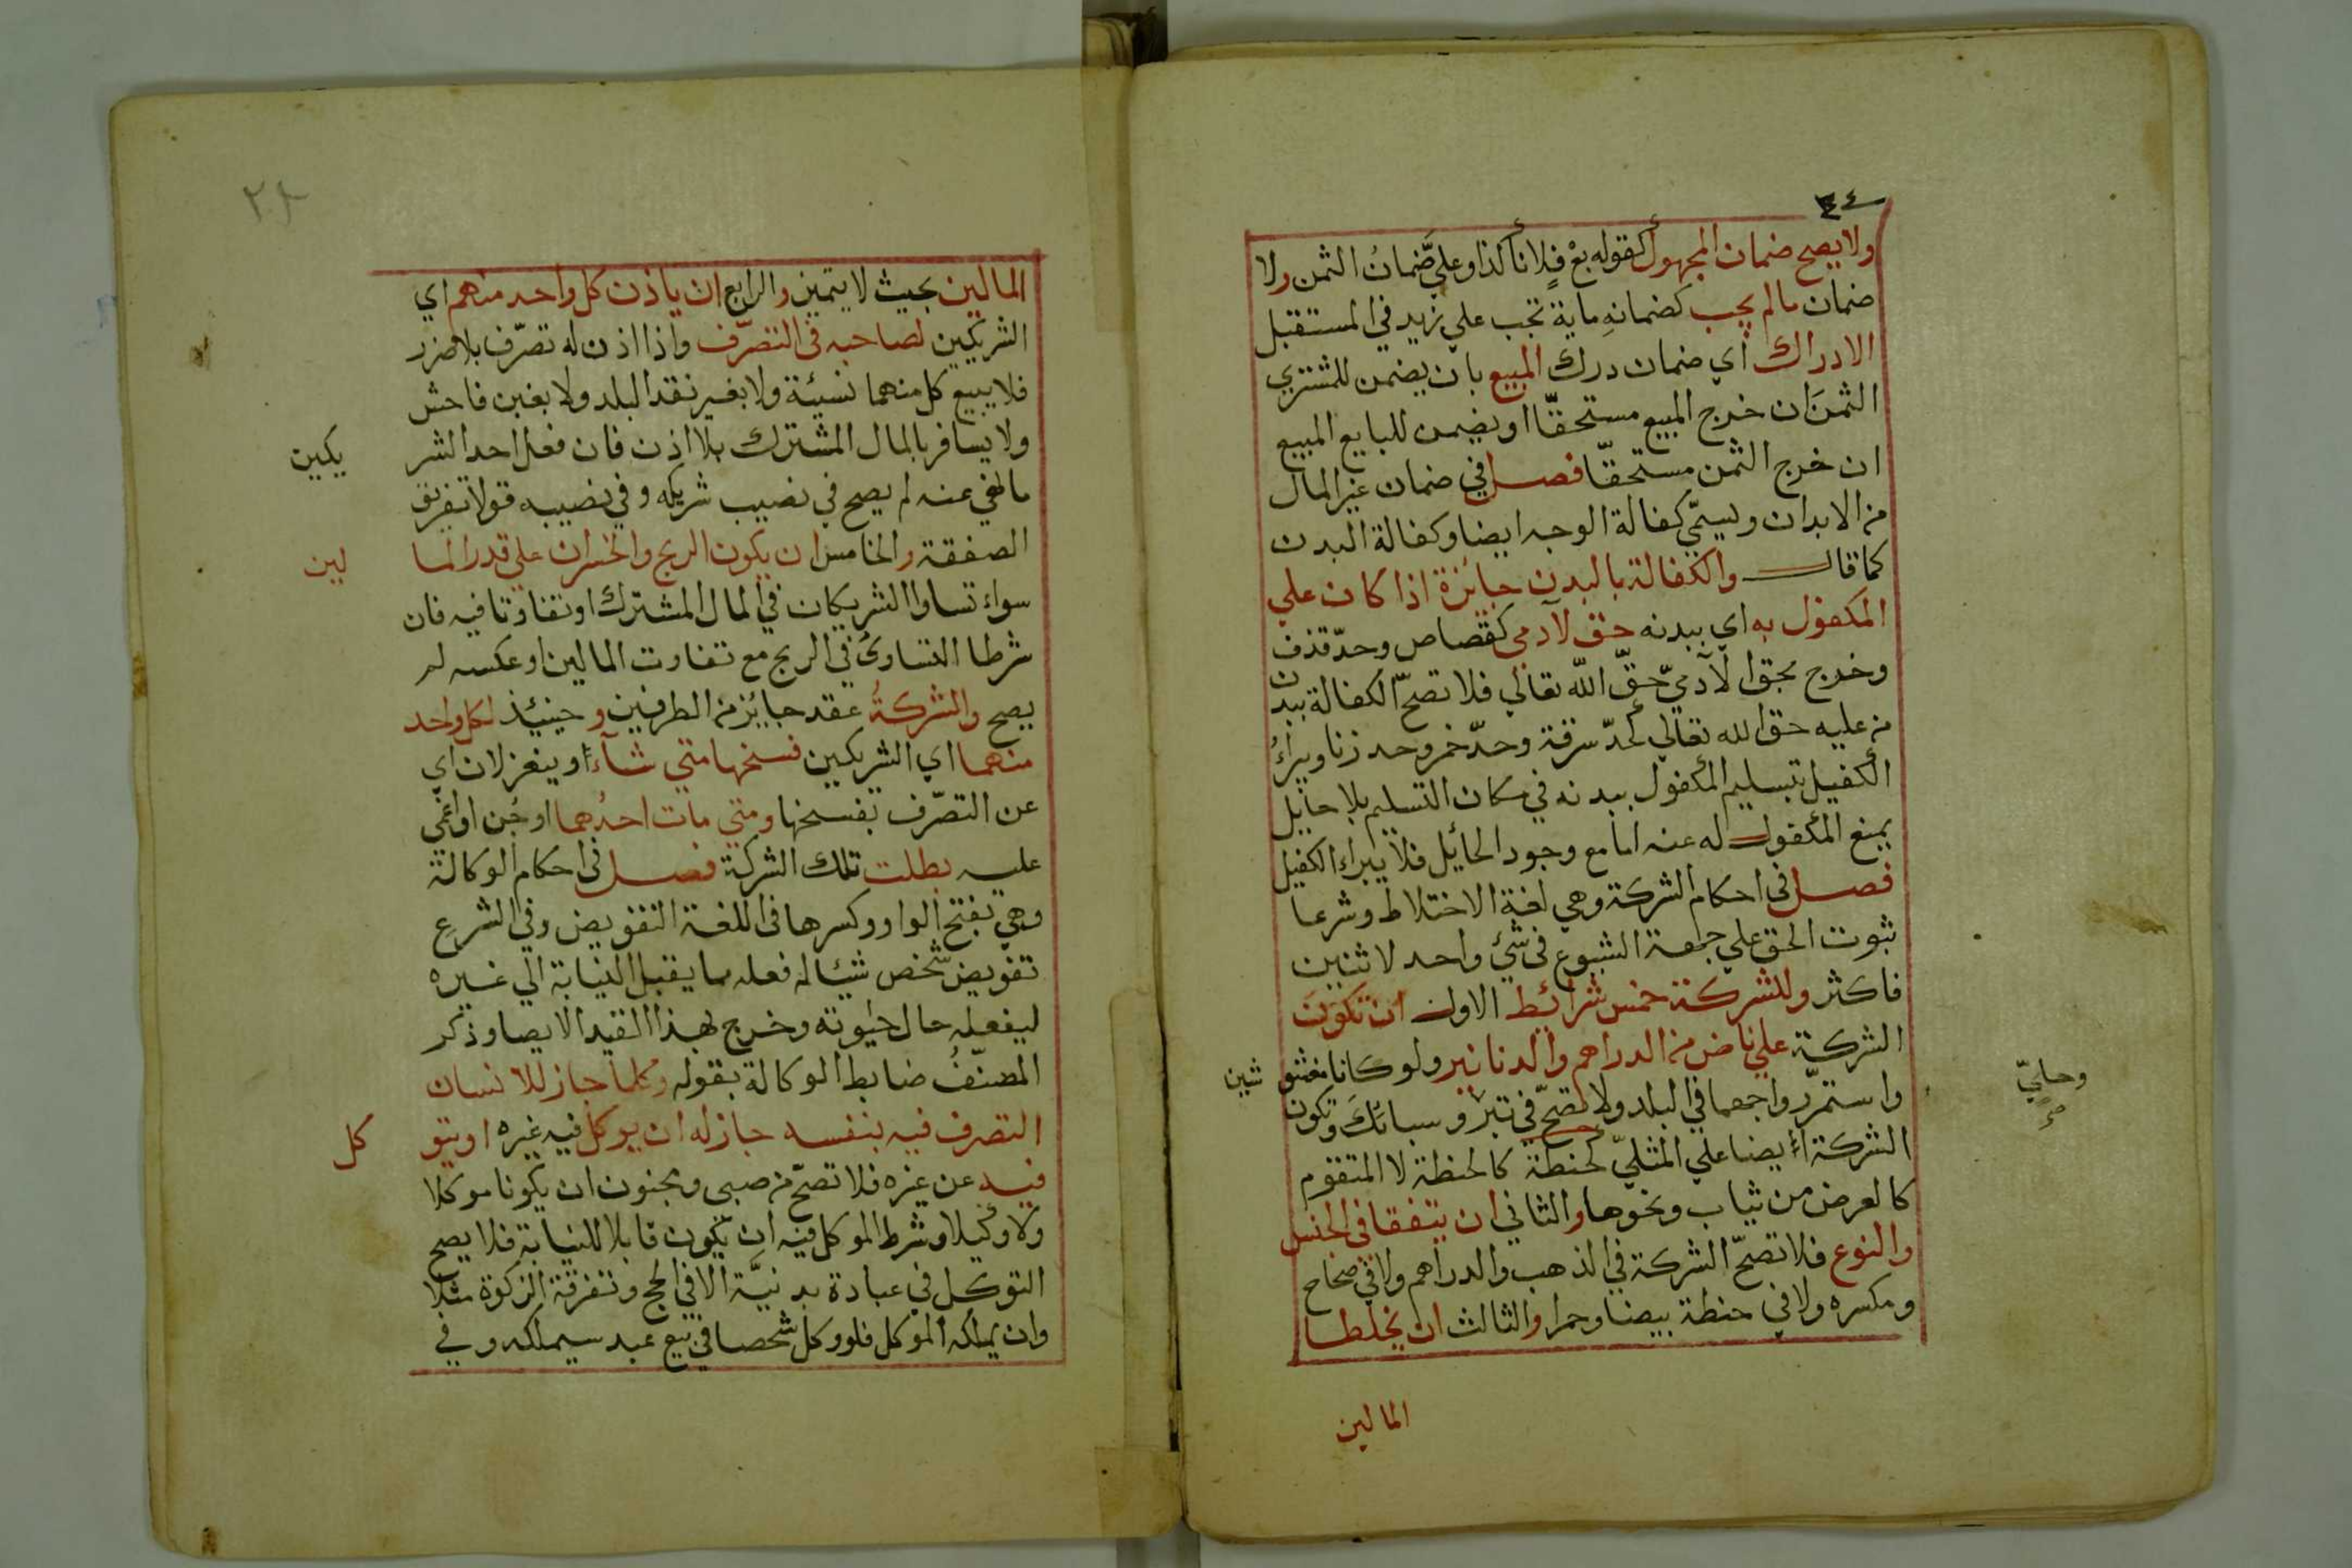 ٤٤
ولا يصح ضمان المجهول كقوله بع فلانا كذا وعلي ضمان الثمن ولا
ضمان ما لم يجب كضمانه ماية تجب علي زيد في المستقبل
الا دراك أي ضمان درك المبيع بان يضمن للمشتري
الثمن ان خرج المبيع مستحقّا او يضمن للبايع المبيع
ان خرج الثمن مستحقّا فصل في ضمان غير المال
من الابدان ويسمّي كفالة الوجه ايضا وكفالة البدن
كما قال والكفالة بالبدن جائزة اذا كان علي
المكفول به اي ببدنه حق لآدمي كقصاص وحدّ قذف
وخرج بحق الآدميّ حقّ الله تعالي فلا تصحّ الكفالة ببدن
من عليه حق الله تعالي كحدّ سرقة وحدّ خمر وحد زنا ويبرأ
الكفيل بتسليم المكفول ببدنه في مكان التسليم بلا حايل
يمنع المكفول له عنه اما مع وجود الحائل فلا يبراء الكفيل
فصل في احكام الشركة وهي لغة الاختلاط وشرعا
ثبوت الحق علي جهة الشيوع في شئ واحد لاثنين
فاكثر وللشركة خمس شرائط الاول ان تكون
الشركة علي ناض من الدراهم والدنانير ولو كانا مغشو شين
واستمرّ رواجهما في البلد ولا تصحّ في تبر وسبائك وتكون
وحليّ
صح
الشركة أيضا علي المثليّ كحنطة كالحنطة لا المتقوم
كالعرض من ثياب ونحوها والثاني ان يتفقا في الجنس
والنوع فلا تصحّ الشركة في الذهب والدراهم ولا في صحاح
ومكسره ولا في حنطة بيضا وحمرا والثالث ان يخلطا
المالين
المالين بحيث لا يتميز والرابع ان ياذن كل واحد منهم اي
الشريكين لصاحبه في التصرّف واذا اذن له تصرّف بلا ضرر
فلا يبيع كل منهما نسيئة ولا بغير نقد البلد ولا بغبن فاحش
ولا يسافر بالمال المشترك بلا اذن فان فعل احد الشر يكين
ما نهي عنه لم يصح في نصيب شريكه وفي نصيبه قولا تفريق
الصفقة والخامس ان يكون الربح والخسران علي قدر الما لين
سواء تساوا الشريكان في المال المشترك او تفاوتا فيه فان
شرطا التساوي في الربح مع تفاوت المالين او عكسه لم
يصح والشركة عقد جايز من الطرفين وحينئذ لكل واحد
منهما اي الشريكين فسخها متي شآء او ينعزلان اي
عن التصرّف بفسخها ومتي مات احدهما او جُن او اغمي
عليه بطلت تلك الشركة فصل في احكام الوكالة
وهي بفتح الواو وكسرها في اللغة التفويض وفي الشرع
تفويض شخص شيئا له فعله مما يقبل النيابة الي غيره
ليفعله حال حيوته وخرج بهذا القيد الايصا وذكر
المصنّف ضابط الوكالة بقوله وكلما جاز للانسان
التصرف فيه بنفسه جاز له ان يوكل فيه غيره او يتو كل
فيه عن غيره فلا تصحّ من صبي ومجنون ان يكونا موكلا
ولا وكيلا وشرط الموكل فيه ان يكون قابلا للنيابة فلا يصح
التوكل في عبادة بدنيَّة الا في الحج وتفرقة الزكوة مثلا
وان يملكه الموكل فلو وكل شخصا في بيع عبد سيملكه وفي